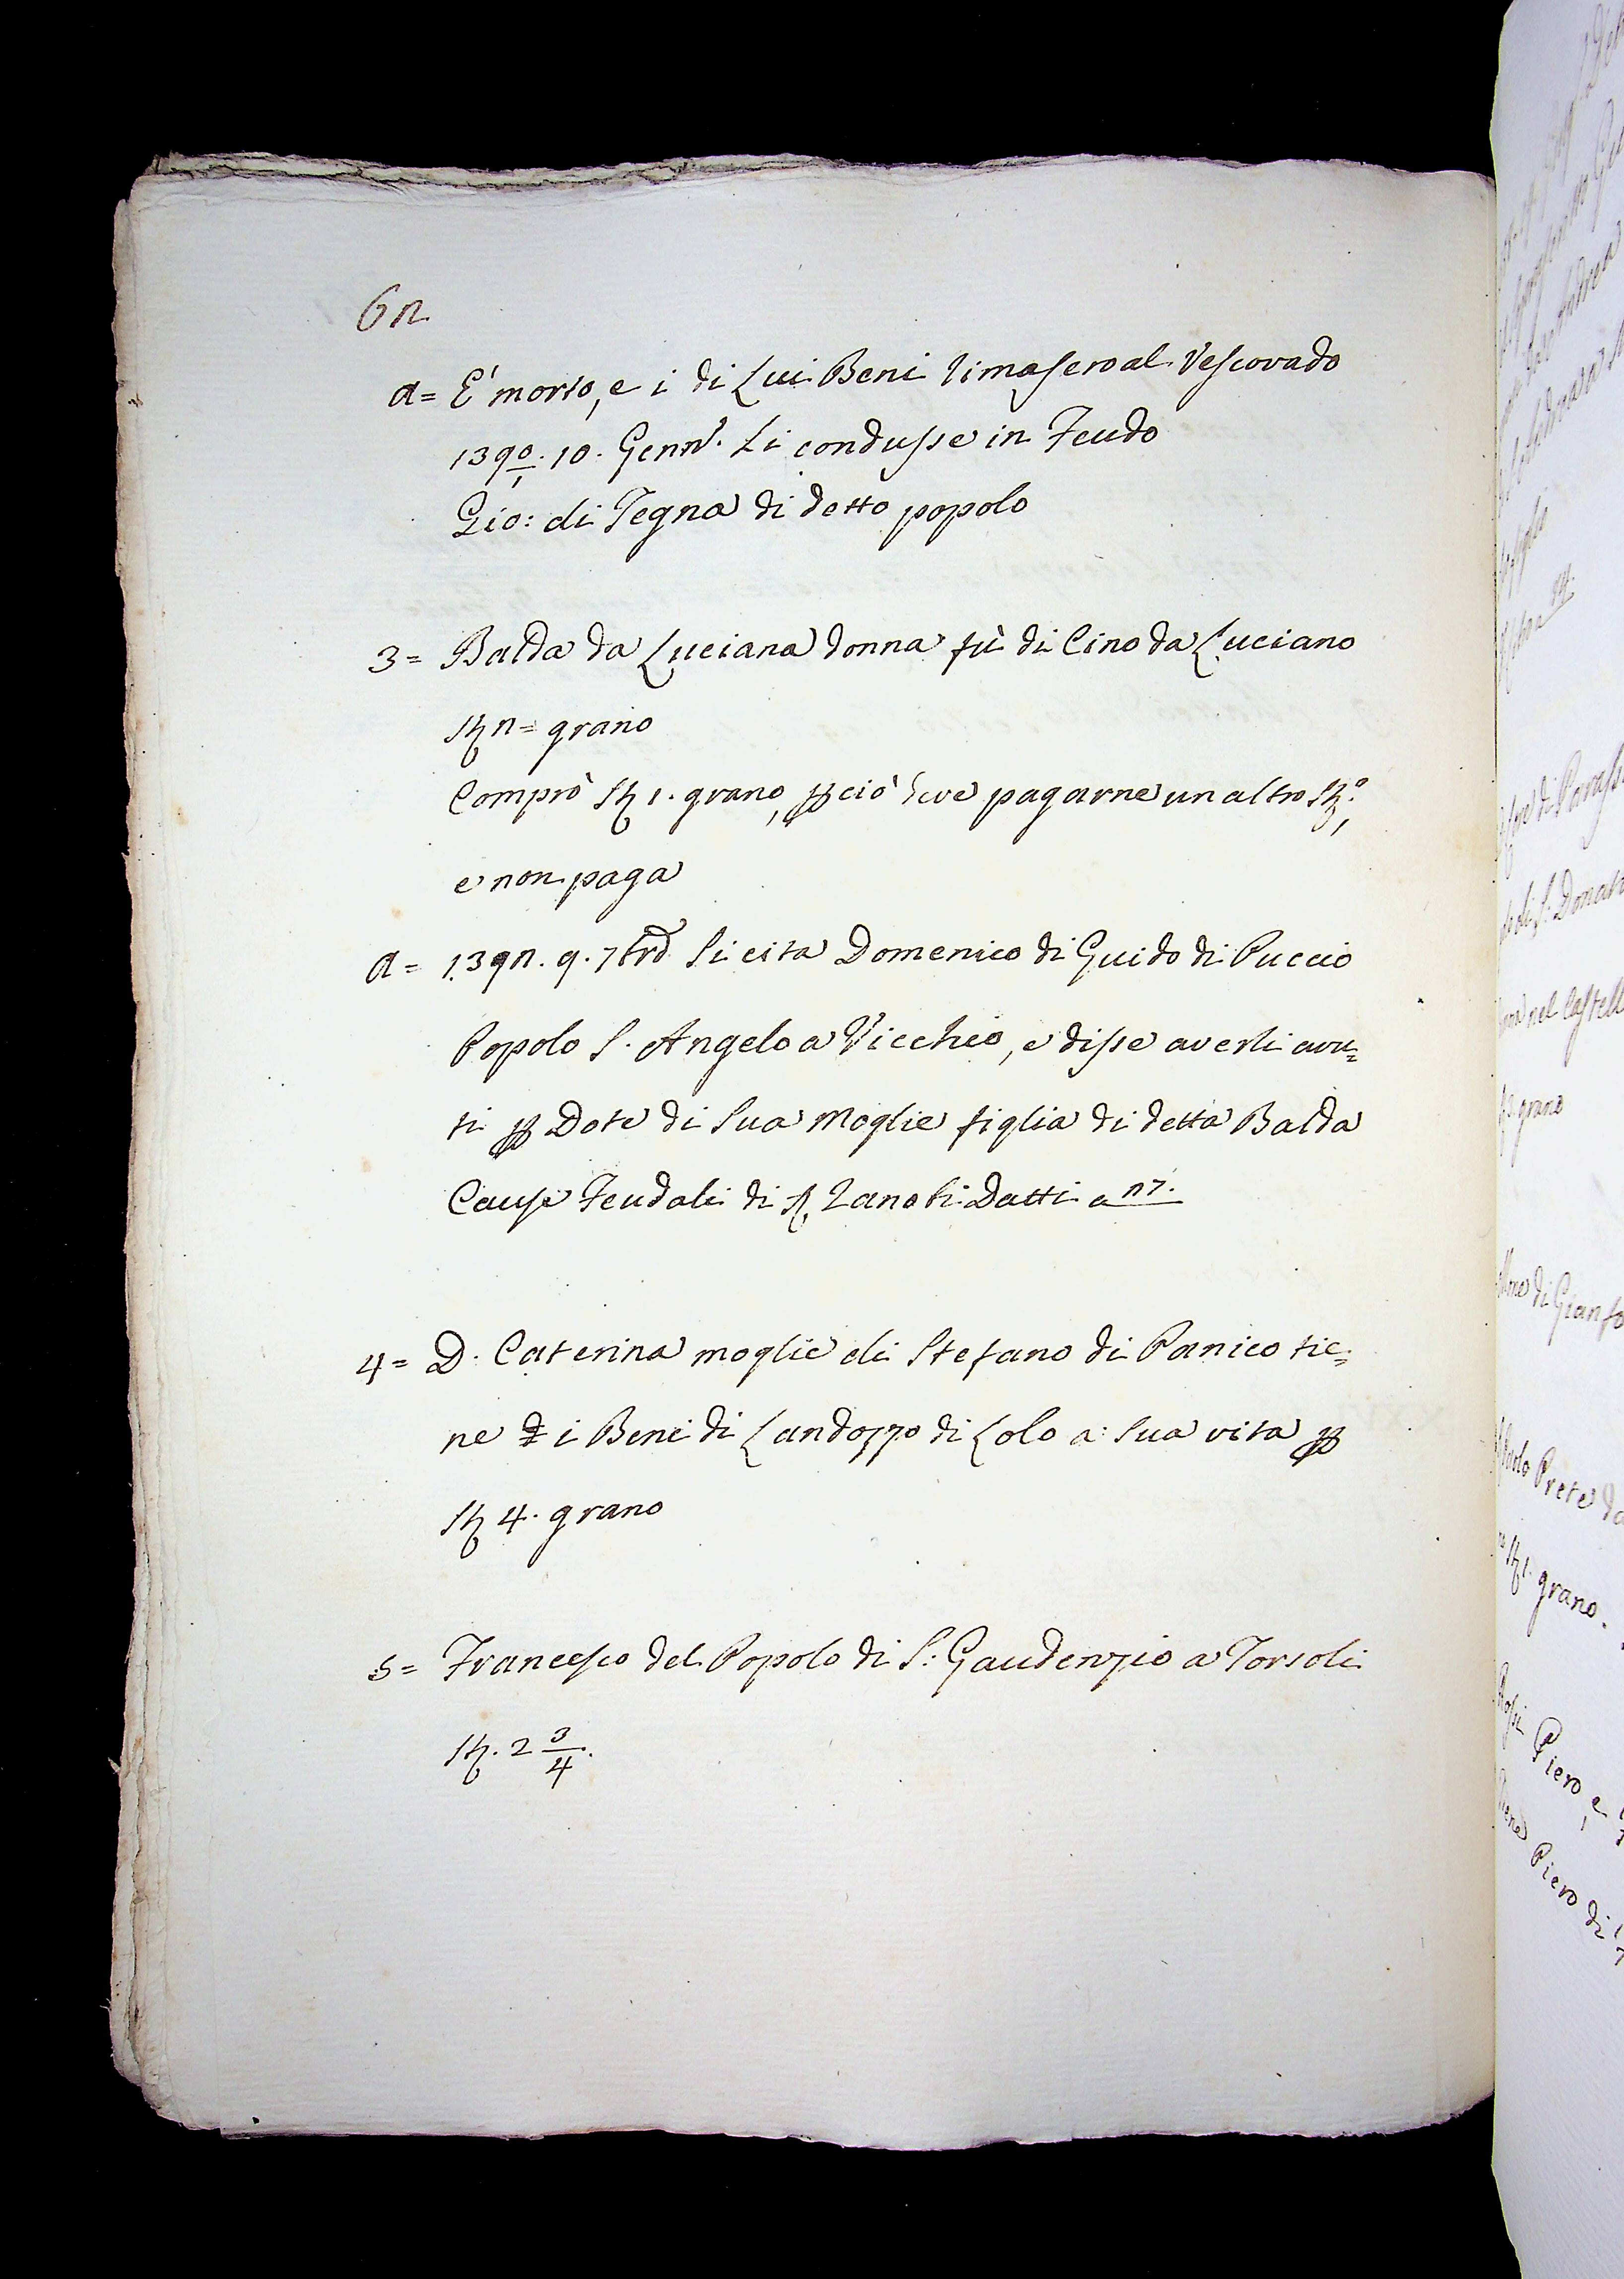 62
a= E' morto, e i di Lui Beni rimasero al Vescovado
1390. 10. Genn.º Li condusse in Feudo
Gio: di Tegna di detto popolo
3= Balda da Luciana donna fù di Cino da Luciano
St 2= grano
Comprò St 1. grano, p ciò deve pagarne un altro St.º,
e non paga
a= 1392. 9. 7bre Si cita Domenico di Guido di Puccio
Popolo S. Angelo a Vicchio, e disse averli avu=
ti p Dote di Sua Moglie figlia di detta Balda
Cause Feudali di Zanobi Datti a 27.
4= D. Caterina moglie di Stefano di Panico tie=
ne i Beni di Landozzo di Lolo a Sua vita p
St 4. grano
5= Francesco del Popolo di S: Gaudenzio a Torsoli
St. 2 3/4.